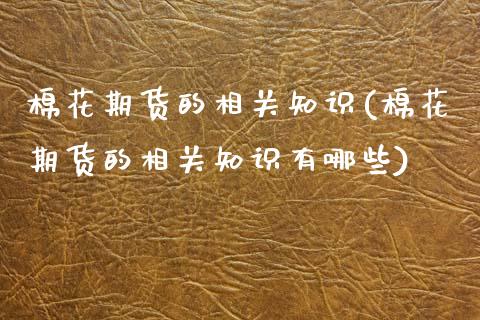 棉花期货的相关知识(棉花
期货的相关知识有哪些)